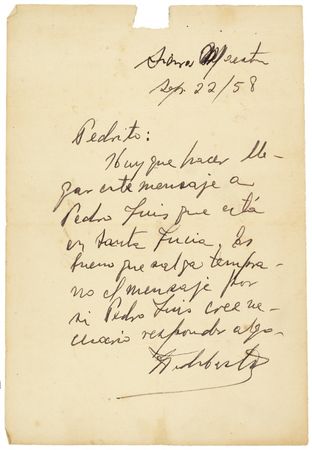 Sierra Maestra
Sep. 22/58
Pedrito:
Hay que hacer lle-
gar este mensaje a
Pedro Luis que está
en Santa Lucia. Es
bueno que salga tempra-
no el mensaje por
si Pedro Luis cree ne-
cesario responder algo.